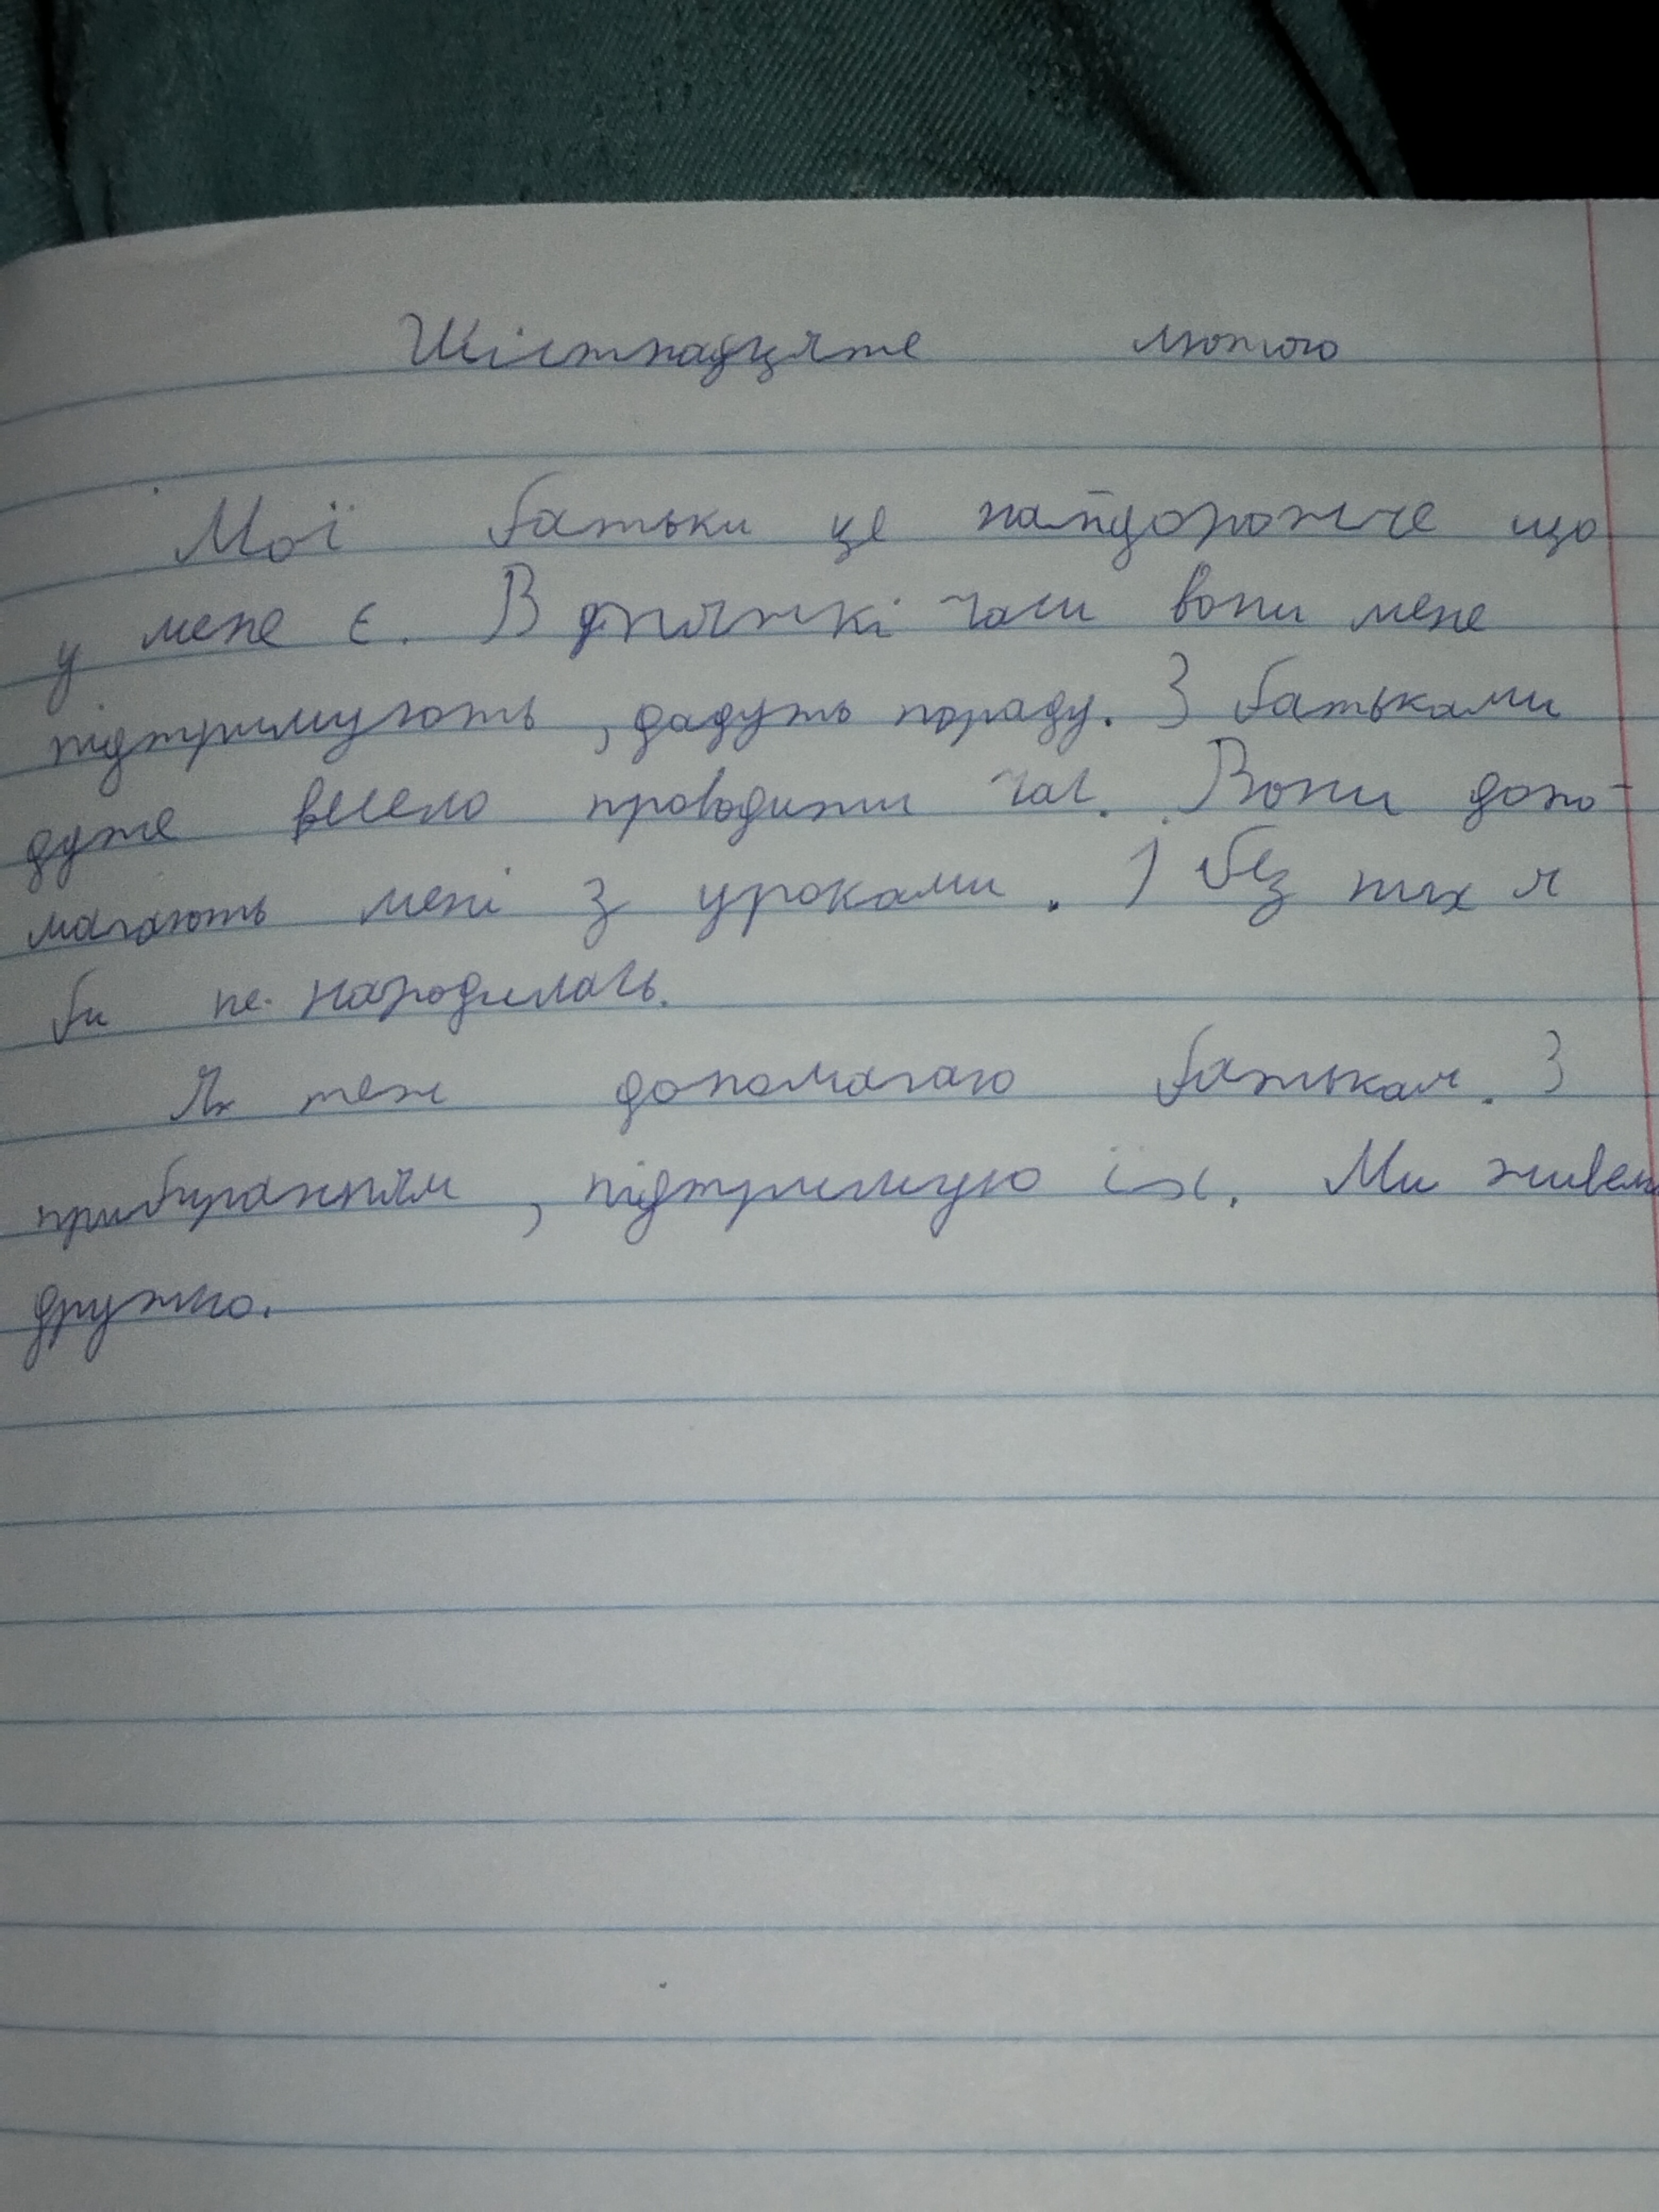 Шістнадцяте лютого
Мої батьки це найдорожче що
у мене є. В тяжкі часи вони мене
підтримують, дадуть пораду. З батьками
дуже весело проводити час. Вони допо-
магають мені з уроками. І без них я
би не народилась.
Я теж допомагаю батькам. З
прибиранням, підтримую їх. Ми живем
дружно.